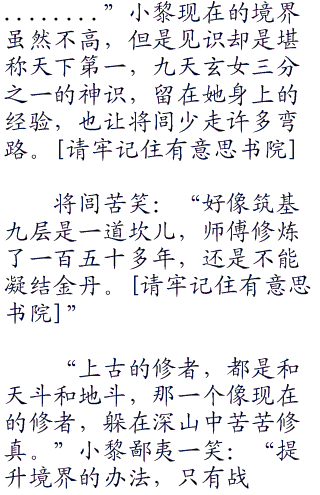 ........”小黎现在的境界
虽然不高，但是见识却是堪
称天下第一，九天玄女三分
之一的神识，留在她身上的
经验，也让将闾少走许多弯
路。[请牢记住有意思书院]
将闾苦笑：“好像筑基
九层是一道坎儿，师傅修炼
了一百五十多年，还是不能
凝结金丹。[请牢记住有意思
书院]”
“上古的修者，都是和
天斗和地斗，那一个像现在
的修者，躲在深山中苦苦修
真。”小黎鄙夷一笑：“提
升境界的办法，只有战